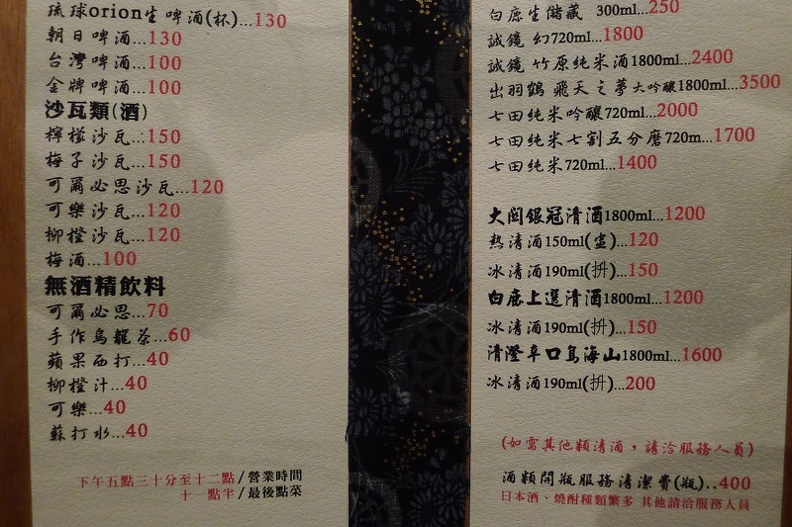 琉球orion生啤酒(杯)...130
朝日啤酒...130
台灣啤酒...100
金牌啤酒...100
沙瓦類(酒)
檸檬沙瓦...150
梅子沙瓦...150
可爾必思沙瓦...120
可樂沙瓦...120
柳橙沙瓦...120
梅酒...100
無酒精飲料
可爾必思...70
手作烏龍茶...60
蘋果西打...40
柳橙汁...40
可樂...40
蘇打水...40
下午五點三十分至十二點/營業時間
十一點半/最後點菜
白鹿生儲藏 300ml...250
誠鏡 幻720ml...1800
誠鏡 竹原純米酒1800ml...2400
出羽鶴 飛天之夢大吟釀1800ml...3500
七田純米吟釀720ml...2000
七田純米七割五分磨720m...1700
七田純米720ml...1400
大関銀冠清酒1800ml...1200
熱清酒150ml(壺)...120
冰清酒190ml(枡)...150
白鹿上選清酒1800ml...1200
冰清酒190ml(枡)...150
清澄辛口鳥海山1800ml...1600
冰清酒190ml(枡)...200
(如需其他類清酒，請洽服務人員)
酒類開瓶服務清潔費(瓶)..400
日本酒、燒酎種類繁多 其他請洽服務人員